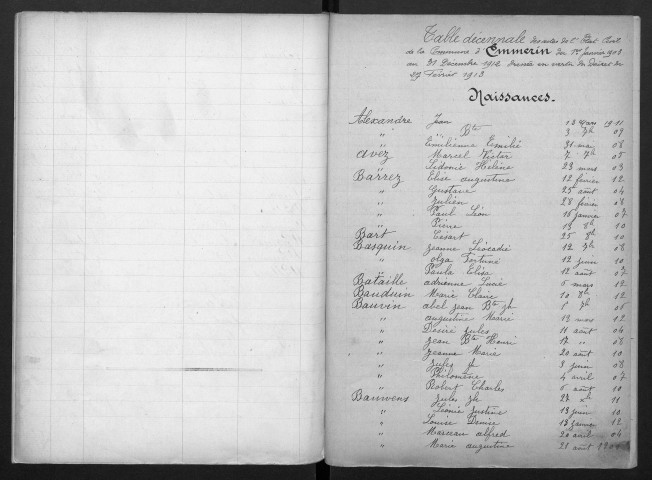 Table décennale des actes de l'Etat Civil
de la Commune d'Emmerin du 1er Janvier 1903
au 31 Décembre 1912 dressée en vertu du Décret du
29 Février 1913
Naissances.
Alexandre Jean 13 mars 1911
" " Bte 3 7bre 09
" Emilienne Emilie 31 mai 06
Avez Marcel Victor 7 7bre 05
" Sidonie Hélène 23 mars 03
Barrez Elise Augustine 12 février 12
" Gustave 25 août 04
" Julien 28 février 06
" Paul Léon 16 janvier 07
" Pierre 13 8bre 10
Bart César 25 8bre 10
Basquin Jeanne Léocadie 12 7bre 06
" Olga Fortuné 12 juin 10
" Paula Elisa 12 août 07
Bataille Adrienne Lucie 6 mars 12
Bauduin Marie Claire 10 8bre 12
Bauvin Abel Jean Bte Jh 1 7bre 05
" Augustine Marie 13 mars 12
" Désiré Jules 11 août 04
" Jean Bte Henri 17 " 06
" Jeanne Marie 20 août 10
" Jules Jh 3 juin 06
" Philomène 4 avril 07
" Robert Charles 6 août 10
Bauwens Jules Jh 27 xbre 11
" Léonie Justine 13 juin 10
" Louise Denise 13 janvier 12
" Marceau Alfred 20 avril 04
" Marie Augustine 21 août